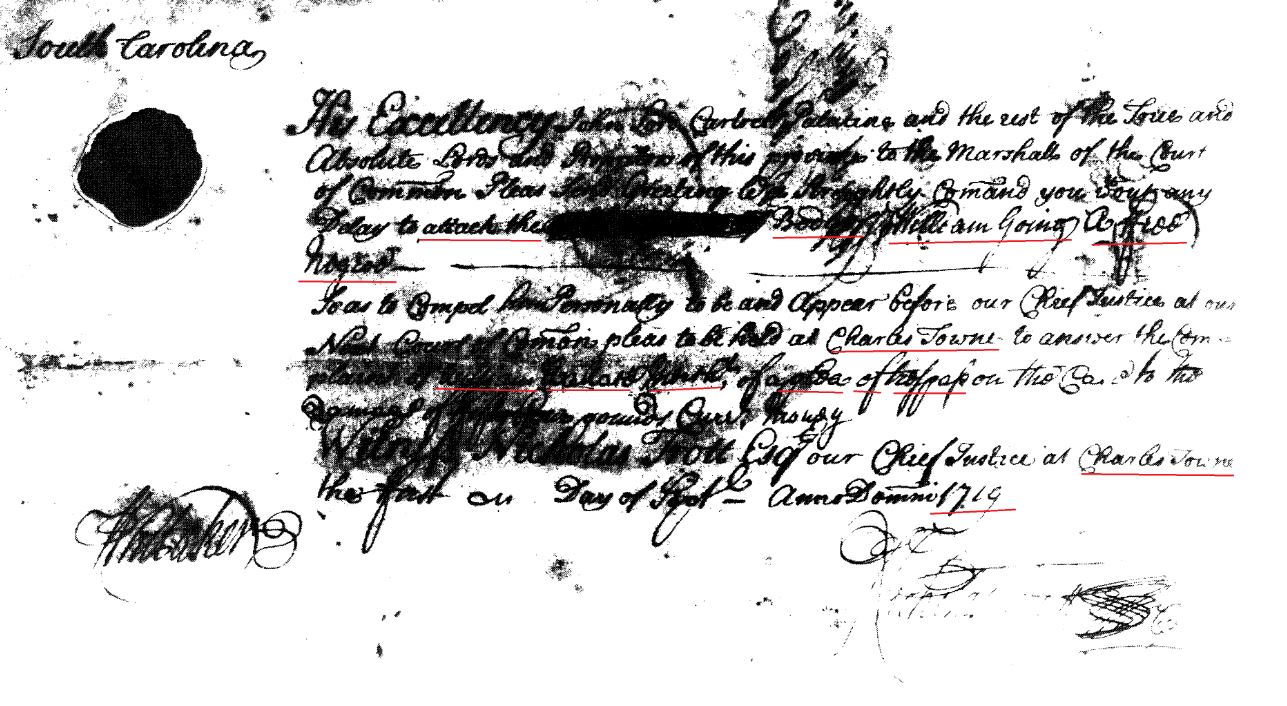 South Carolina
His Excellency John Lord Carteret Palatine and the rest of the True and
Absolute Lords and Proprietors of this province to the Marshall of the Court
of Common Pleas Send Greeting We Straightly Comand you without any
Delay to attach the Body of William Going A Free
Negroe
So as to Compel him Personally to be and Appear before our Chief Justice at our
Next Court of Comon pleas to be held at Charles Towne to answer the Com-
plaint of of a plea of trespass on the Case to the
Damage of pounds Curr.t money
Witness Nicholas Trott Esq.r our Chief Justice at Charles Towne
the first Day of Sept.r Anno Domini 1719
Whitaker